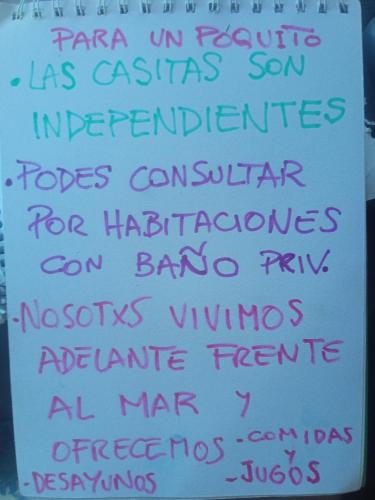 PARA UN POQUITO
• LAS CASITAS SON
INDEPENDIENTES
• PODES CONSULTAR
POR HABITACIONES
CON BAÑO PRIV.
• NOSOTXS VIVIMOS
ADELANTE FRENTE
AL MAR Y
OFRECEMOS - COMIDAS
Y
- DESAYUNOS - JUGOS